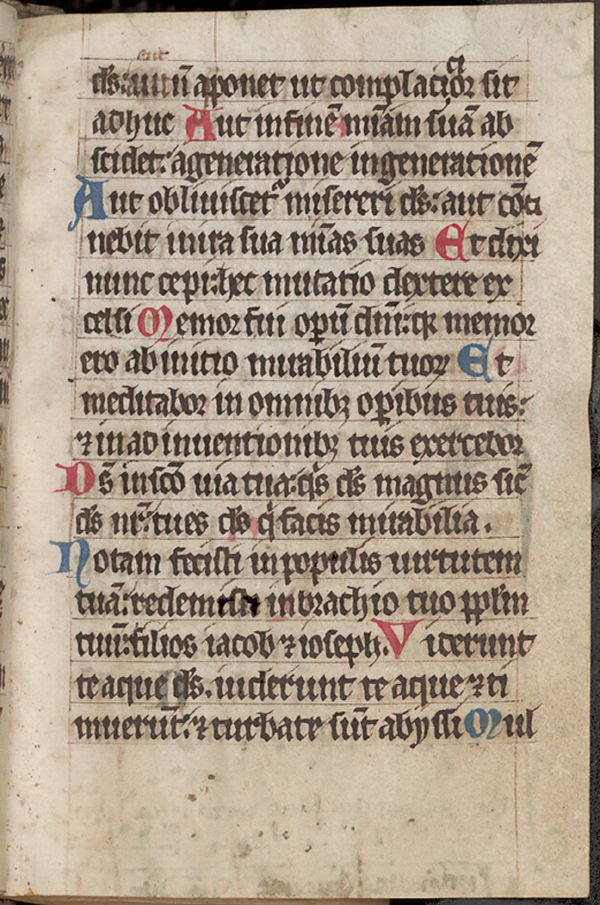 aut
ds: aut nō aponet ut complacicior sit
adhuc Aut in finē miām suā ab
scidet: a generatione in generationē
Aut obliuiscet misereri ds: aut cōti
nebit in ira sua mias suas Et dixi
nunc cepi: hec mutatio dextere ex
celsi Memor fui operū dni: q memor
ero ab initio mirabiliū tuor Et
meditabor in omnibꝫ operibus tuis:
⁊ in ad inuentionibꝫ tuis exercebor
Ds in sco uia tua: qis ds magnus sic
ds nr: tu es ds q facis mirabilia.
Notam fecisti in populis uirtutem
tuā: redemisti in brachio tuo pplm
tuū: filios iacob ⁊ ioseph. Viderunt
te aque ds. uiderunt te aque ⁊ ti
muerūt: ⁊ turbate sūt abyssi Mul